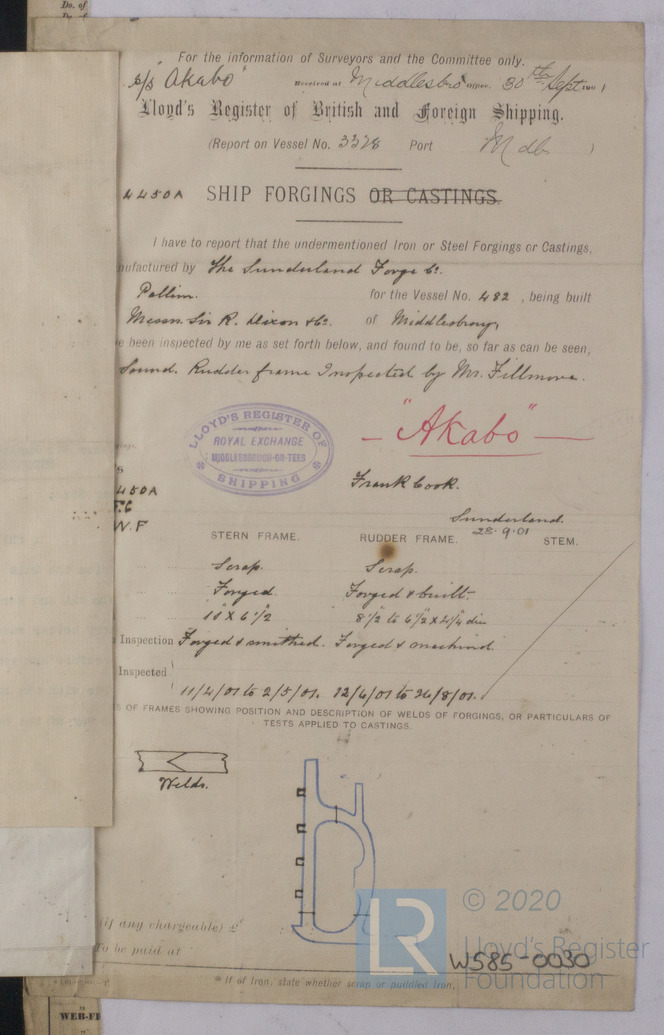 Do. of
For the information of Surveyors and the Committee only.
s/s "Akabo" Received at Middlesbro' Office, 30th Sept 190 1
Lloyd's Register of British and Foreign Shipping.
(Report on Vessel No. 3328 Port Mdb )
4450A SHIP FORGINGS OR CASTINGS.
I have to report that the undermentioned Iron or Steel Forgings or Castings,
nufactured by The Sunderland Forge Co.
Pallion. for the Vessel No. 482, being built
Messrs. Sir R. Dixon & Co. of Middlesbrough,
e been inspected by me as set forth below, and found to be, so far as can be seen,
Sound. Rudder frame Inspected by Mr. Fillmore.
"Akabo"
LLOYD'S REGISTER OF
ROYAL EXCHANGE
MIDDLESBOROUGH-ON-TEES
SHIPPING
Frank Cook.
450A
F.C
W.F
Sunderland.
28.9.01
STERN FRAME. RUDDER FRAME. STEM.
Scrap. Scrap.
Forged. Forged & built.
11" x 6 1/2 8 1/2 to 6 1/2 x 4 1/4 dia
Inspection Forged & smithed. Forged & machined.
Inspected 11/4/01 to 2/5/01. 12/6/01 to 26/8/01.
S OF FRAMES SHOWING POSITION AND DESCRIPTION OF WELDS OF FORGINGS, OR PARTICULARS OF
TESTS APPLIED TO CASTINGS.
Welds.
(if any chargeable) £
To be paid at
* If of Iron, state whether scrap or puddled Iron.
W585-0030
LR
© 2020
Lloyd's Register
Foundation
WEB-FR